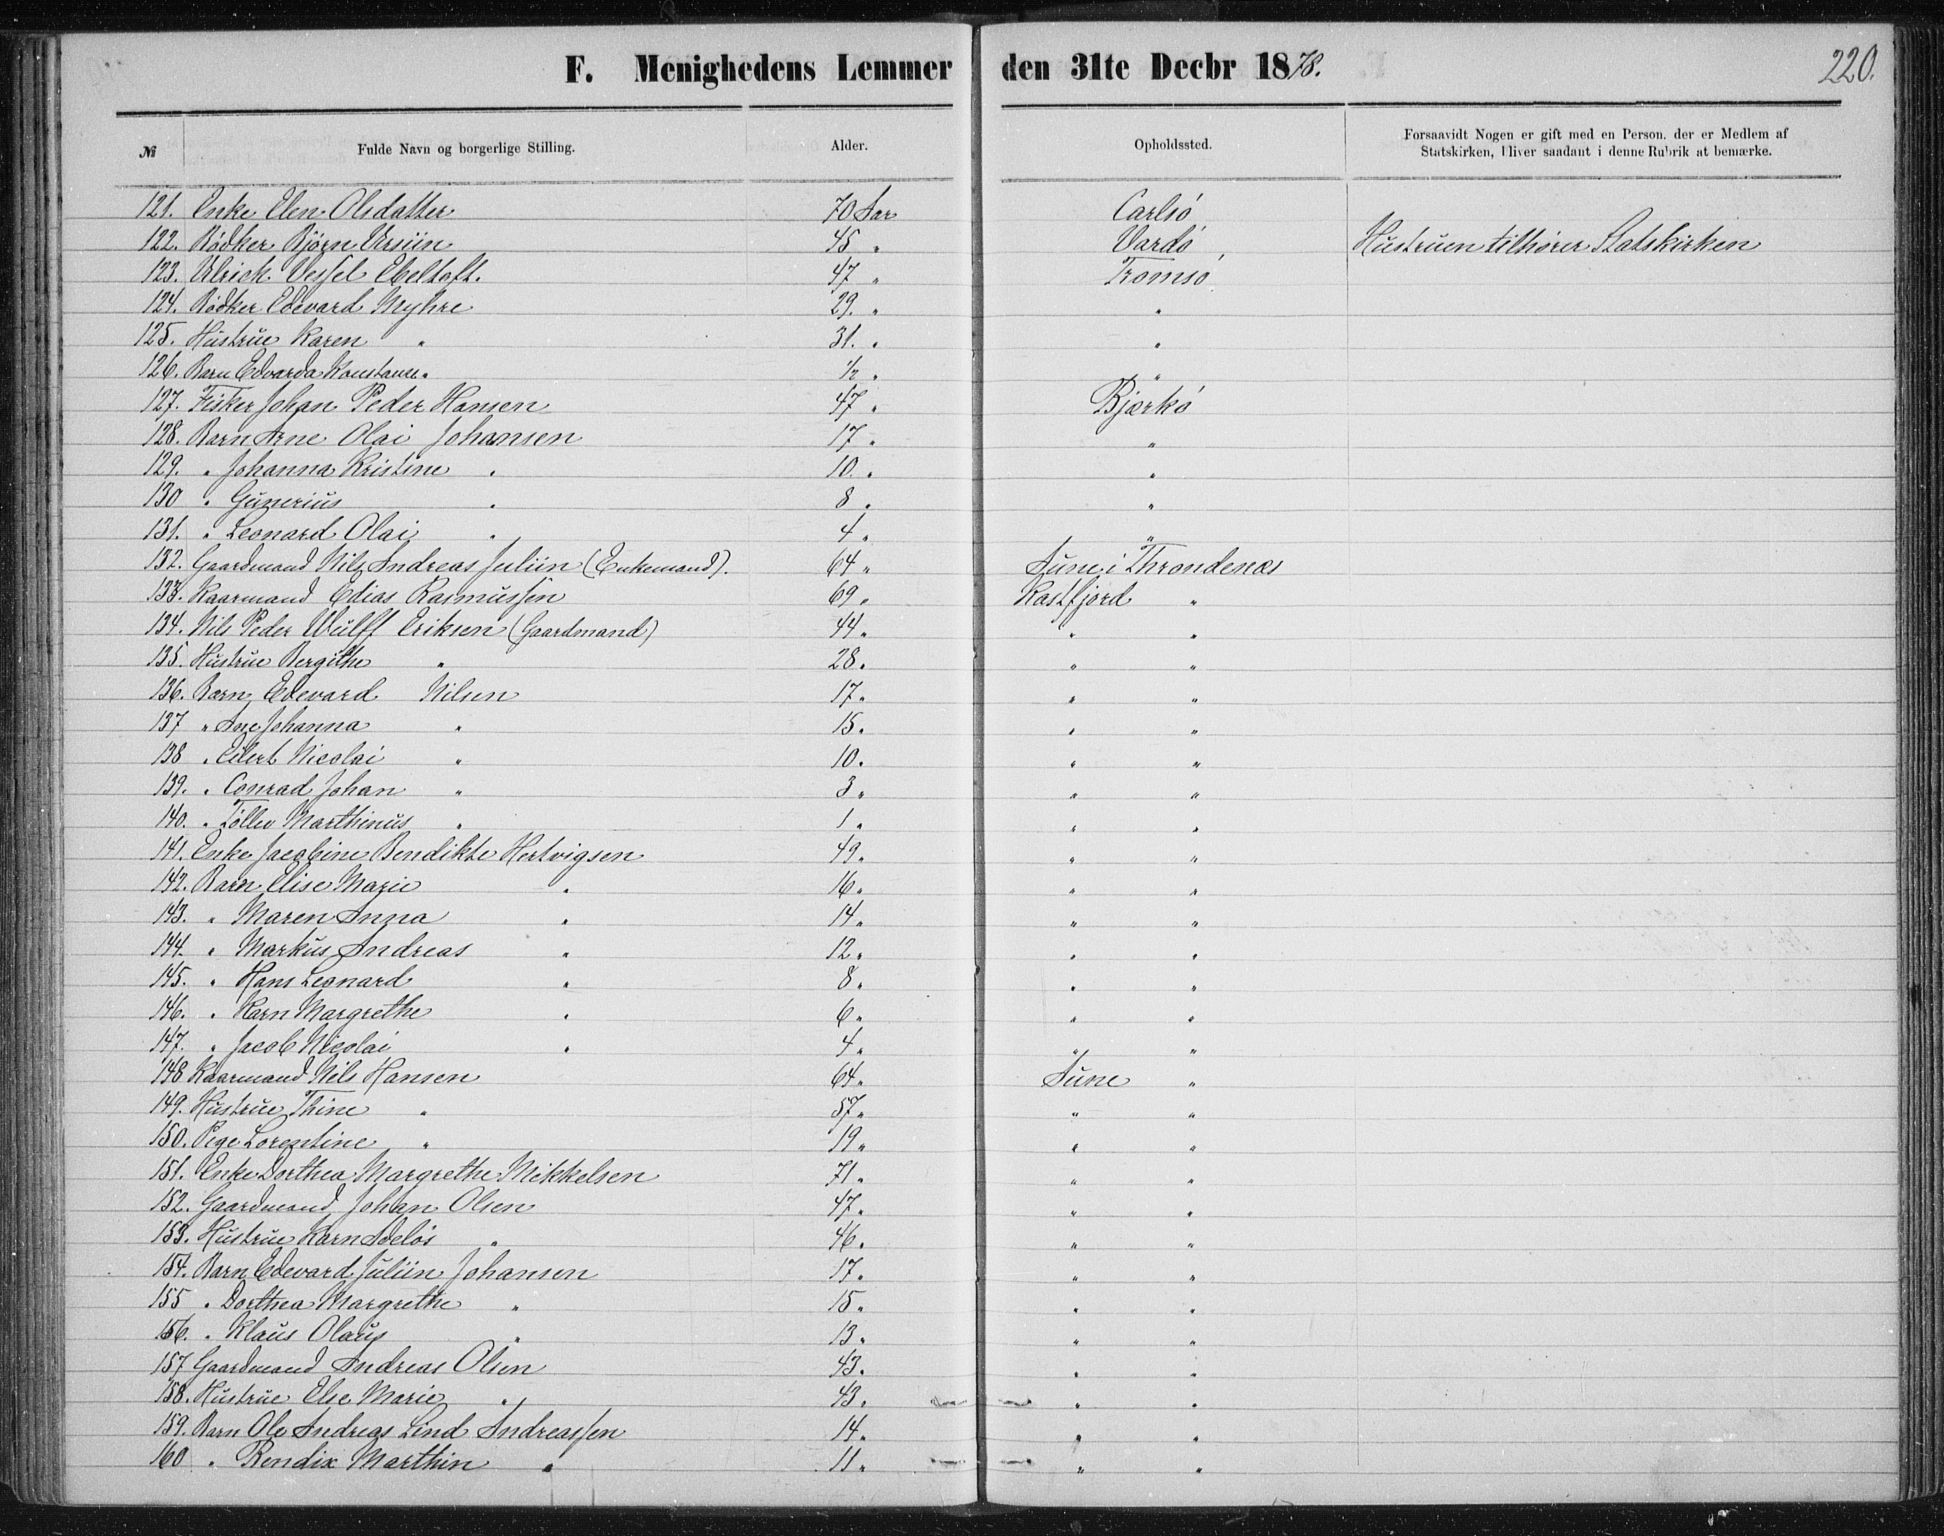 F. Menighedens Lemmer den 31te Decbr 1878.
220.
№ Fulde Navn og borgerlige Stilling. Alder. Opholdssted. Forsaavidt Nogen er gift med en Person, der er Medlem af
Statskirken, bliver saadant i denne Rubrik at bemærke.
121. Enke Elen Olsdatter 70 Aar Carlsö
122. Bödker Bjørn Ursiin 45 " Vardö Hustruen tilhører Statskirken
123. Ulrich Vessel Ebeltoft. 47 " Tromsö
124. Bödker Edevard Myhre 29. " "
125. Hustrue Karen " 31. " "
126. Barn Edvarda Konstance " 1/2 " "
127. Fisker Johan Peder Hansen 47 " Bjarkö
128. Barn Arne Olai Johansen 17 " "
129. " Johanna Kristine " 10. " "
130 " Gunerius " 8 " "
131. " Leonard Olai " 4 " "
132. Gaardmand Nils Andreas Juliin (Enkemand). 64 " Aune i Throndenæs
133. Kaarmand Edias Rasmussen 69 " Kastfjord "
134. Nils Peder Wulff Eriksen (Gaardmand) 44 " " "
135. Hustrue Bergithe " 28 " " "
136. Barn Edevard Nilsen 17 " " "
137 " Ane Johanna " 15 " " "
138 " Eilert Nicolai " 10 " " "
139. " Conrad Johan " 3 " " "
140. " Tollev Marthinus " 1 " " "
141. Enke Jacobine Bendikte Hertvigsen 49 " " "
142. Barn Elise Marie " 16 " " "
143. " Maren Anna " 14 " " "
144. " Markus Andreas " 12 " " "
145. " Hans Leonard " 8 " " "
146. " Karn Margrethe " 6 " " "
147. " Jacob Nicolai " 4 " " "
148 Kaarmand Nils Hansen 64 " Aune "
149. Hustrue Thine " 57 " " "
150. Pige Lorentine " 19 " " "
151. Enke Dorthea Margrethe Mikkelsen 71 " " "
152. Gaardmand Johan Olsen 47 " " "
153. Hustrue Karn Adelös " 46 " " "
154. Barn Edevard Juliin Johansen 17 " " "
155 " Dorthea Margrethe " 15 " " "
156. " Klaus Olaus " 13 " " "
157 Gaardmand Andreas Olsen 43 " " "
158. Hustrue Else Marie " 43 " " "
159. Barn Ole Andreas Lind Andreassen 14 " " "
160 " Bendix Marthin " 11 " " "